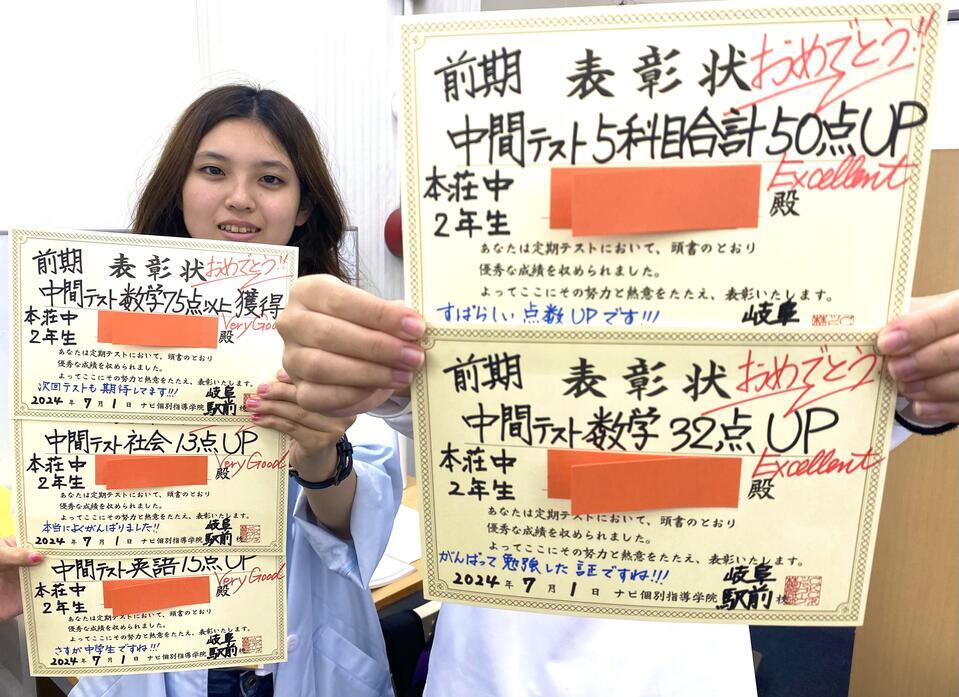 前期 表彰状 おめでとう!!
中間テスト数学75点以上獲得
本荘中 Very Good
2年生 殿
あなたは定期テストにおいて、頭書のとおり
優秀な成績を収められました。
よってここにその努力と熱意をたたえ、表彰いたします。
次回テストも期待してます!!! 岐阜
2024年7月1日 ナビ個別指導学院 駅前 校
中間テスト社会13点UP
本荘中 Very Good
2年生 殿
あなたは定期テストにおいて、頭書のとおり
優秀な成績を収められました。
よってここにその努力と熱意をたたえ、表彰いたします。
本当によくがんばりました!! 岐阜
2024年7月1日 ナビ個別指導学院 駅前 校
中間テスト英語15点UP
本荘中 Very Good
2年生 殿
あなたは定期テストにおいて、頭書のとおり
優秀な成績を収められました。
よってここにその努力と熱意をたたえ、表彰いたします。
さすが中学生ですね!!! 岐阜
2024年7月1日 ナビ個別指導学院 駅前 校
前期 表彰状 おめでとう!!
中間テスト5科目合計50点UP
本荘中 Excellent
2年生 殿
あなたは定期テストにおいて、頭書のとおり
優秀な成績を収められました。
よってここにその努力と熱意をたたえ、表彰いたします。
すばらしい点数UPです!!! 岐阜
前期 表彰状 おめでとう
中間テスト数学32点UP
本荘中 Excellent
2年生 殿
あなたは定期テストにおいて、頭書のとおり
優秀な成績を収められました。
よってここにその努力と熱意をたたえ、表彰いたします。
がんばって勉強した証ですね!!! 岐阜
2024年7月1日 ナビ個別指導学院 駅前 校